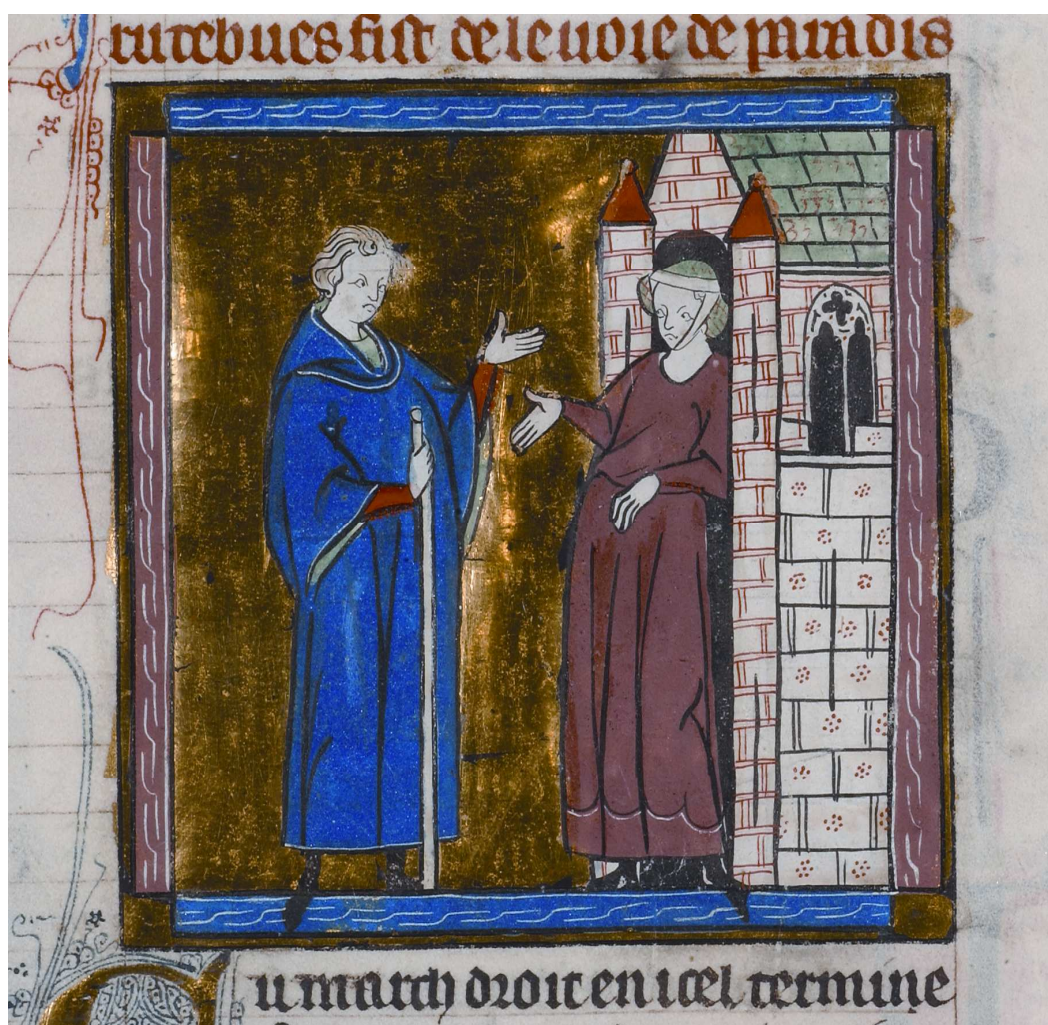 rutebues fist de le uoie de paradis
u march droit en icel termine